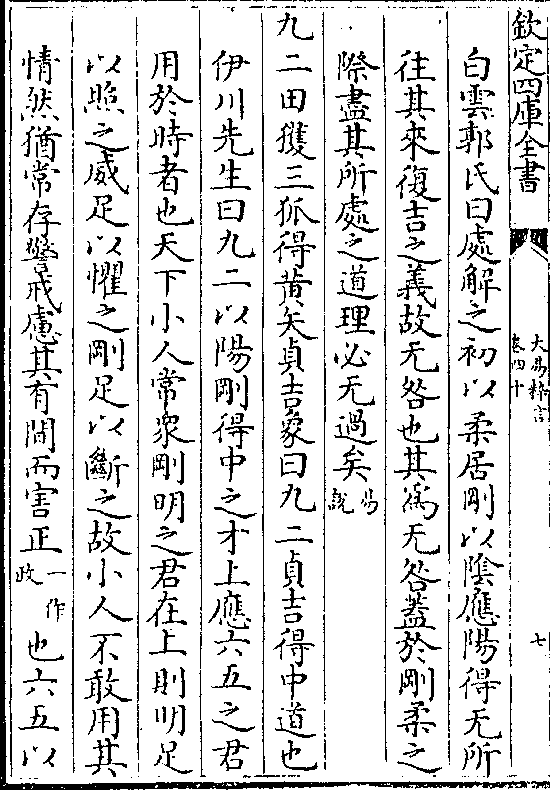 欽定四庫全書
大易粹言
卷四十
七
白雲郭氏曰處解之初以柔居剛以陰應陽得无所
往其來復吉之義故无咎也其為无咎蓋於剛柔之
際盡其所處之道理必无過矣易說
九二田獲三狐得黄矢貞吉象曰九二貞吉得中道也
伊川先生曰九二以陽剛得中之才上應六五之君
用於時者也天下小人常衆剛明之君在上則明足
以照之威足以懼之剛足以斷之故小人不敢用其
情然猶常存警戒慮其有間而害正一作政也六五以